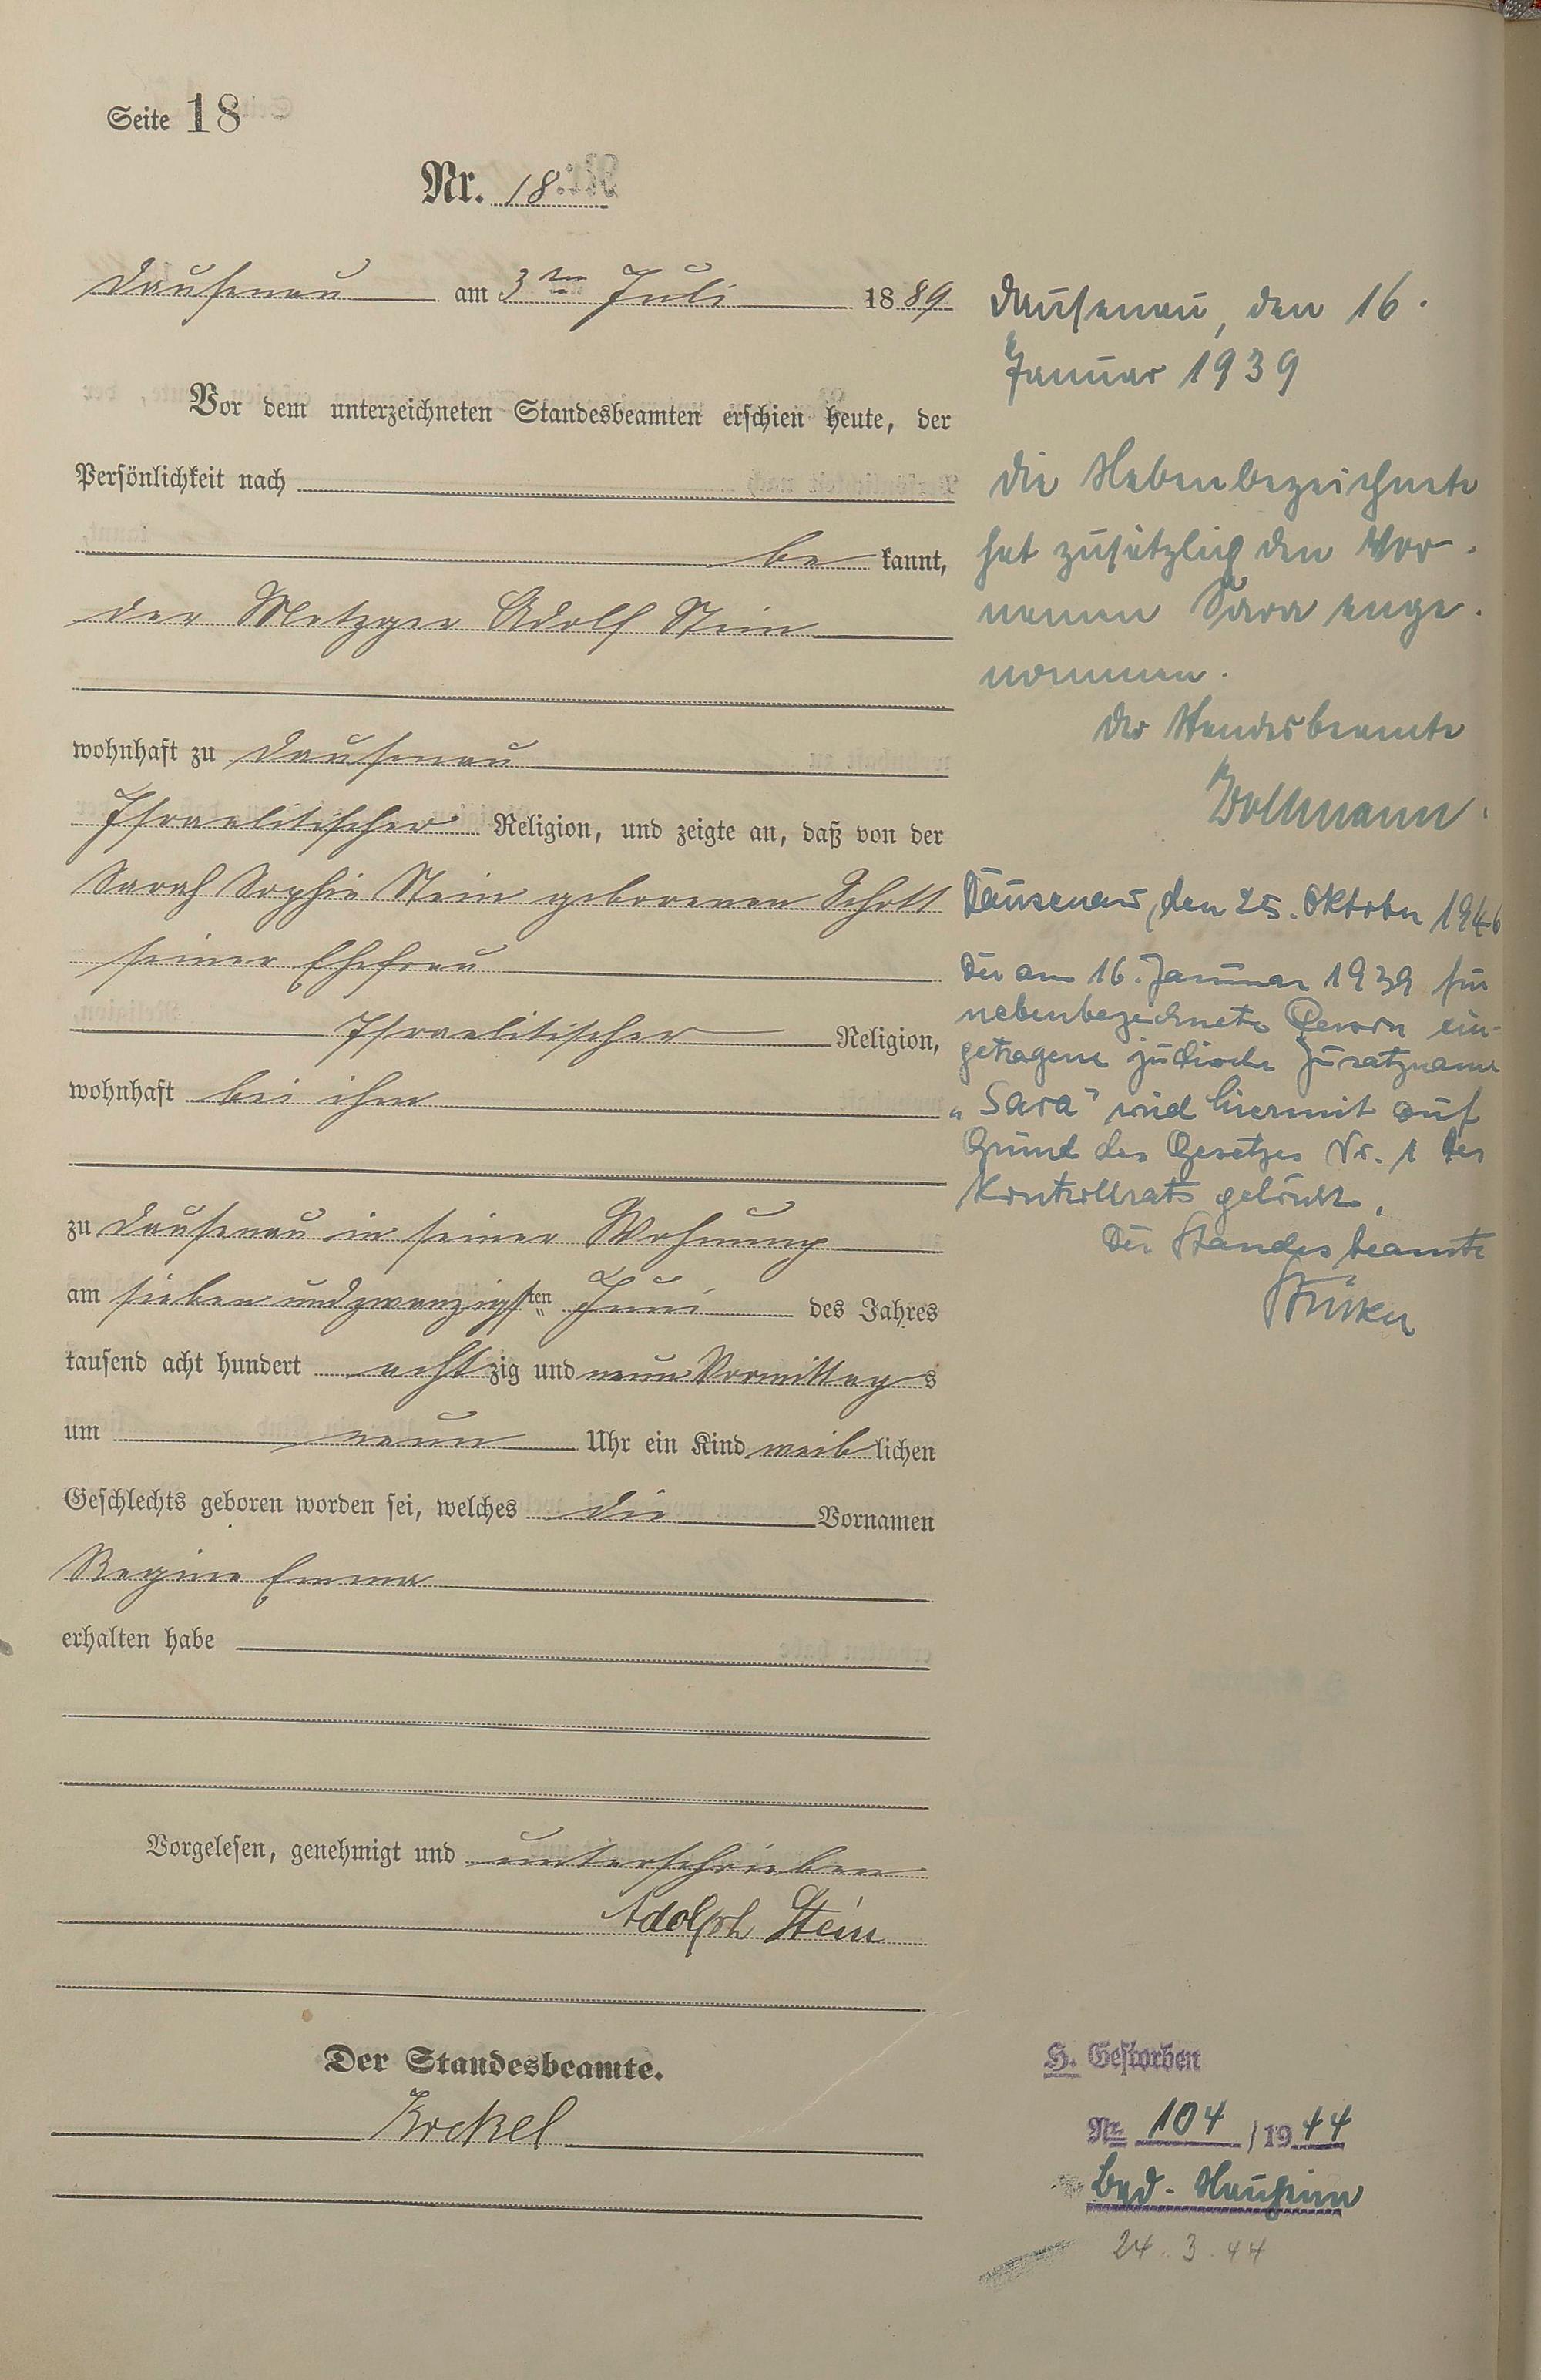 Seite 18
Nr. 18.
Dausenau am 3ten Juli 1889
Vor dem unterzeichneten Standesbeamten erschien heute, der
Persönlichkeit nach
be kannt,
der Metzger Adolf Stein
wohnhaft zu Dausenau
Israelitischer Religion, und zeigte an, daß von der
Sarah Sophie Stein geborenen Schott
seiner Ehefrau
Israelitischer Religion,
wohnhaft bei ihm
zu Dausenau in seiner Wohnung
am sieben und zwanzigsten Juni des Jahres
tausend acht hundert achtzig und neun Vormittags
um neun Uhr ein Kind weiblichen
Geschlechts geboren worden sei, welches die Vornamen
Regine Emma
erhalten habe
Vorgelesen, genehmigt und unterschrieben
Adolph Stein
Der Standesbeamte.
Krekel
Dausenau, den 16.
Januar 1939
Die Nebenbezeichnete
hat zusätzlich den Vor-
namen Sara ange-
nommen.
Der Standesbeamte
Bollmann
Dausenau, den 25. Oktober 1946
Der am 16. Januar 1939 für
nebenbezeichnete Person ein-
getragene jüdische Zusatzname
„Sara" wird hiermit auf
Grund des Gesetzes Nr. 1 des
Kontrollrats gelöscht.
Der Standesbeamte
H. Gestorben
Nr. 104 / 1944
Bad-Nauheim
24.3.44